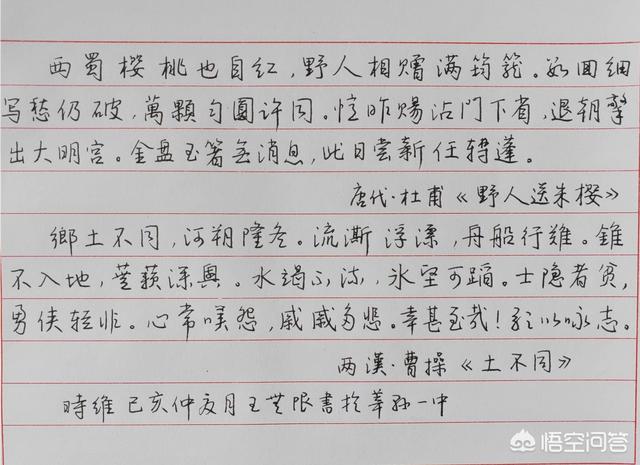 西蜀樱桃也自红，野人相赠满筠笼。数回细
写愁仍破，萬顆匀圓许同。忆昨赐沾門下省，退朝擎
出大明宫。金盘玉箸无消息，此日尝新任转蓬。
唐代·杜甫《野人送朱樱》
鄉土不同，河朔隆冬。流澌浮漂，舟船行難。錐
不入地，蘴藾深奥。水竭不流，冰坚可蹈。士隐者贫，
勇侠轻非。心常嘆怨，戚戚多悲。幸甚至哉！歌以咏志。
两漢·曹操《土不同》
時維己亥仲夏月王
書於莘孙一中
悟空问答